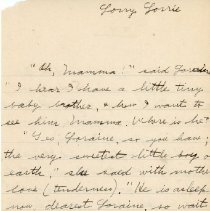 Lorry Lorrie
"Oh, Mamma!" said Loraine
"I hear I have a little tiny
baby brother, & how I want to
see him Mamma. Where is he"
"Yes, Loraine, so you have,
the very sweetest little boy on
earth," she said with mother
love (tenderness). "He is asleep
now dearest Loraine, so wait